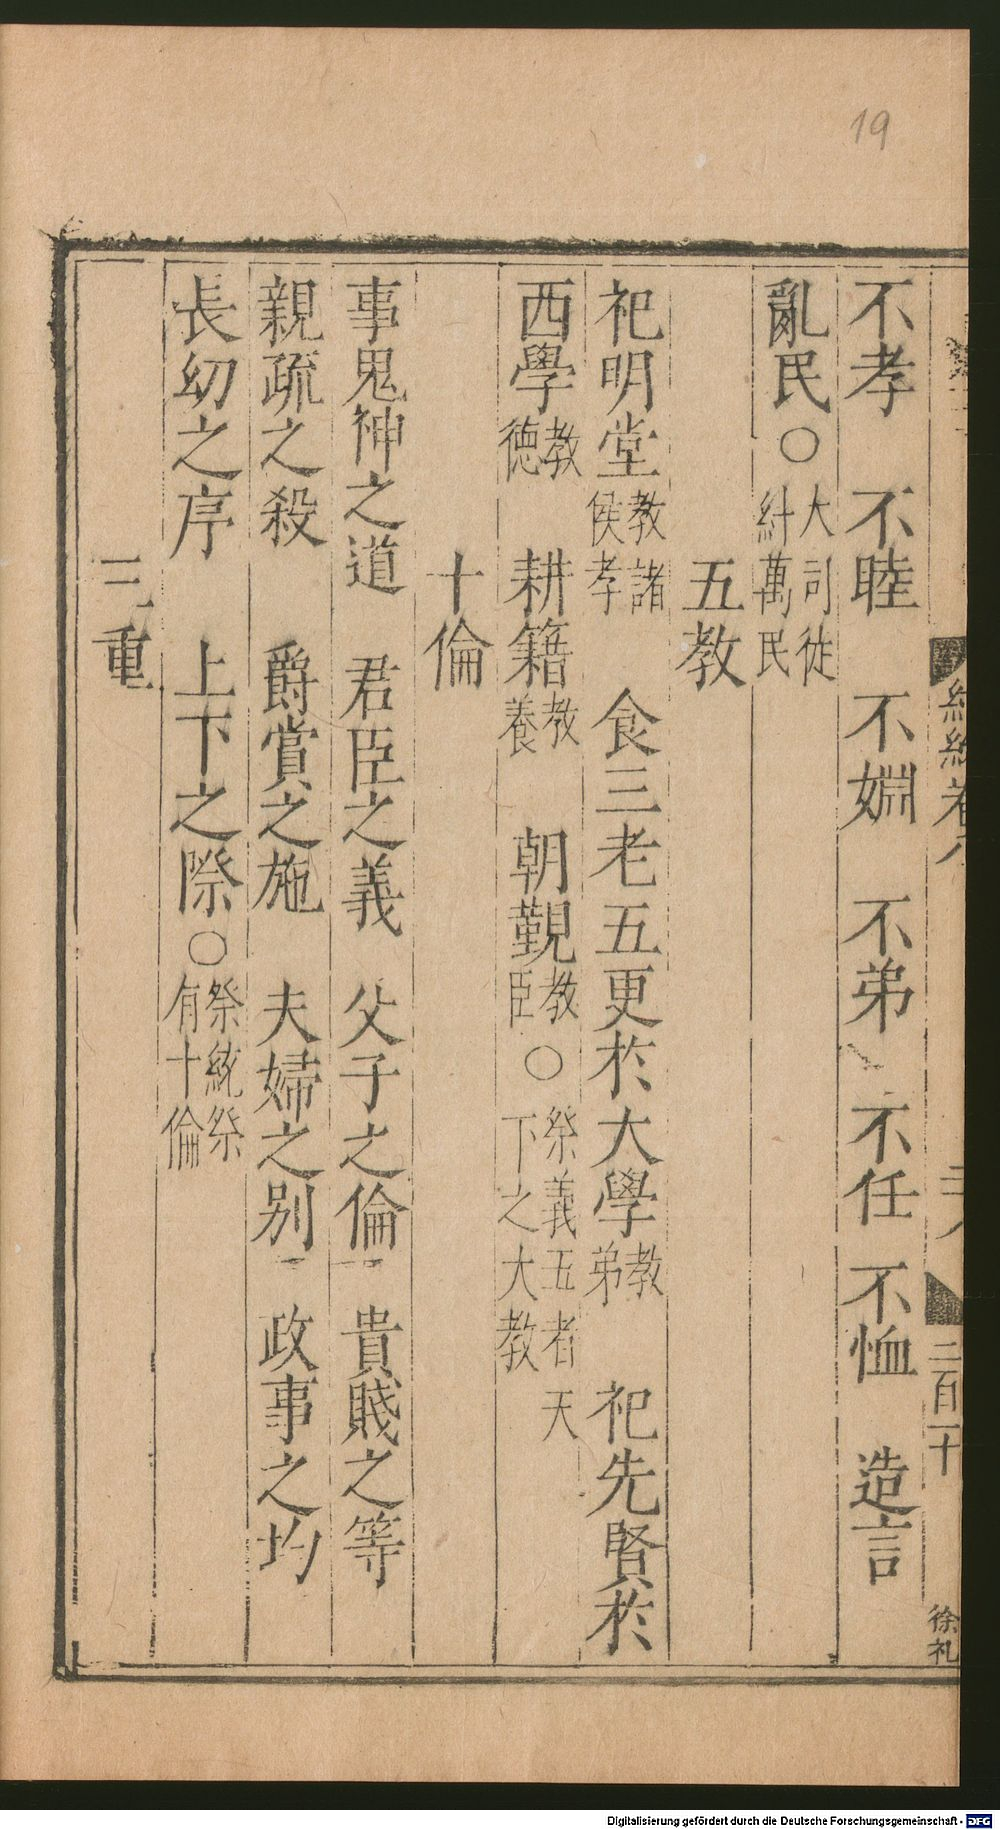 19
不孝　不睦　不婣　不弟　不任　不恤　造言
亂民○大司徒糾萬民
五教
祀明堂教諸侯孝　食三老五更於大學教弟　祀先賢於
西學教德　耕籍教養　朝覲教臣○祭義五者天下之大教
十倫
事鬼神之道　君臣之義　父子之倫　貴賤之等
親疏之殺　爵賞之施　夫婦之别　政事之均
長幼之序　上下之際○祭統祭有十倫
三重
卷八
二百二十
徐礼
Digitalisierung gefördert durch die Deutsche Forschungsgemeinschaft - DFG